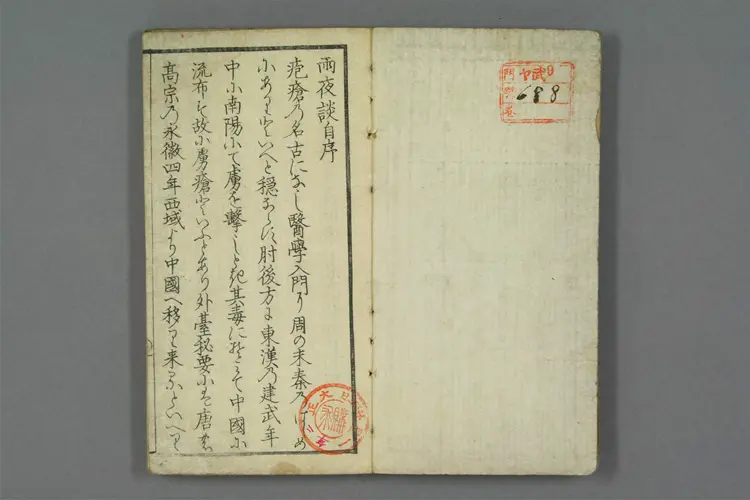 雨夜談自序
疱瘡乃名古になし醫學入門り周の末秦乃はしめ
にありといへと穏ならす肘後方に東漢乃建武年
中に南陽にて虜を撃しとき其毒にそみて中國に
流布す故に虜瘡といふとあり外臺秘要には唐
高宗乃永徽四年西域より中國へ移り来るといへり
688